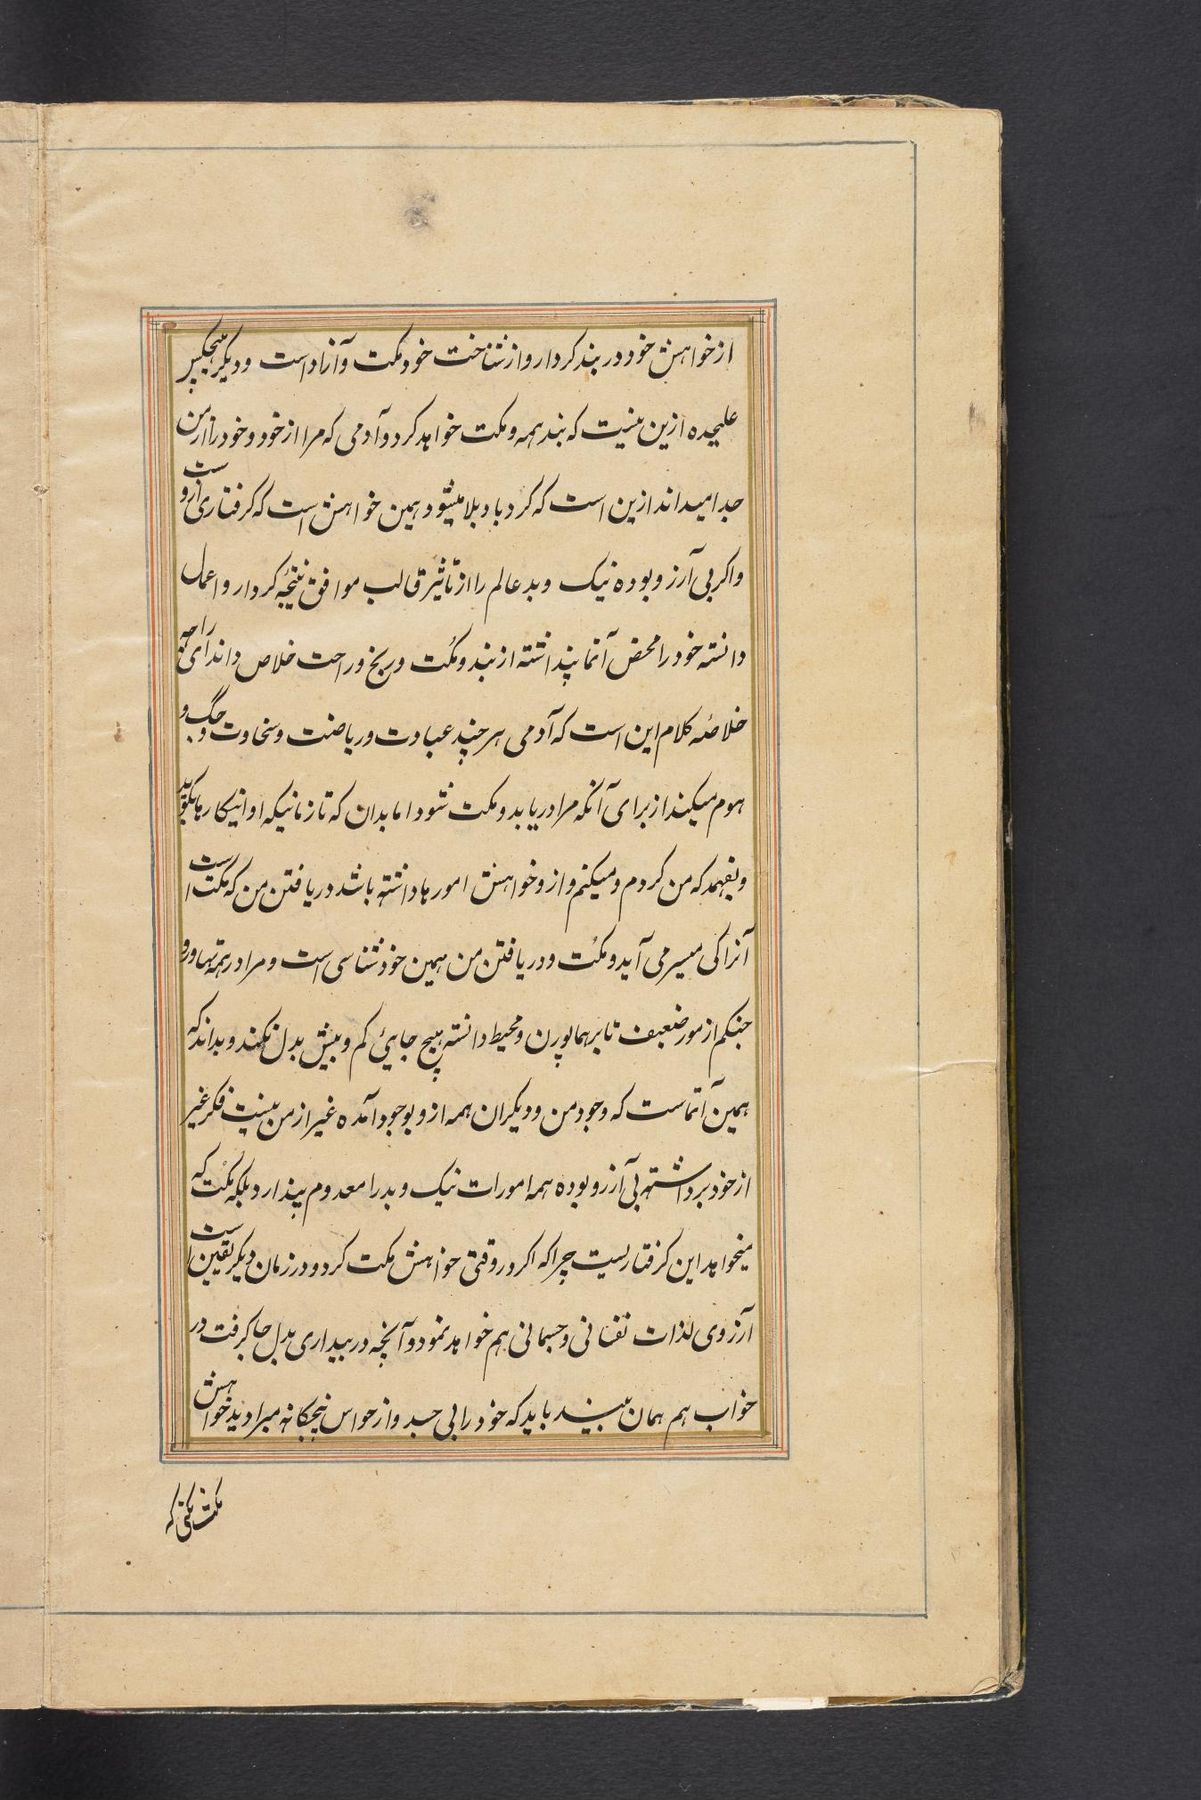 از خواهش خود در بند کردار و از شناخت خود مکت و آزاد است و دیکر هیچکس
علیحده ازین نیست که بند همه و مکت خواهد کرد و آدمی که مرا از خود و خود را از من
جدا میداند ازین است که کرد باد بلا میشود همین خواهش است که کرفتاری ازوست
و اکر بی آرزو بوده نیک و بد عالم را از تاثیر قالب موافق نتیجهٔ کردار و اعمال
دانسته خود را محض آتما پنداشته از بند و مکت و رنج و راحت خلاص داند ای راجه
خلاصهٔ کلام این است که آدمی هر چند عبادت و ریاضت و سخاوت و جک و
هوم میکند از برای آنکه مرا دریابد و مکت شود اما بدان که تا زمانیکه او اینکارها بکوید
و بفهمد که من کردم و میکنم و ازو خواهش امورها داشته باشد دریافتن من که مکت است
آنرا کی میسر می آید و مکت و دریافتن من همین خودشناسی است و مرا در همه تنها و رو
جنکم از مور ضعیف تا برهما پورن و محیط دانسته هیچ جایی کم و بیش بدل نکند و بداند که
همین آتماست که وجود من و دیکران همه ازو بوجود آمده غیر از من نیست فکر غیر
از خود برداشته بی آرزو بوده همه امورات نیک و بد را معدوم پندارد بلکه مکت که
میخواهد این کرفتاریست چرا که اکر در وقتی خواهش مکت کرد و در زمان دیکر یقین است
آرزوی لذات نفسانی و جسمانی هم خواهد نمود و آنچه در بیداری بدل جا کرفت در
خواب هم همان بیند باید که خود را بی جسد و از حواس پنجکانه مبرا دید خواهش
مکت نکنی که